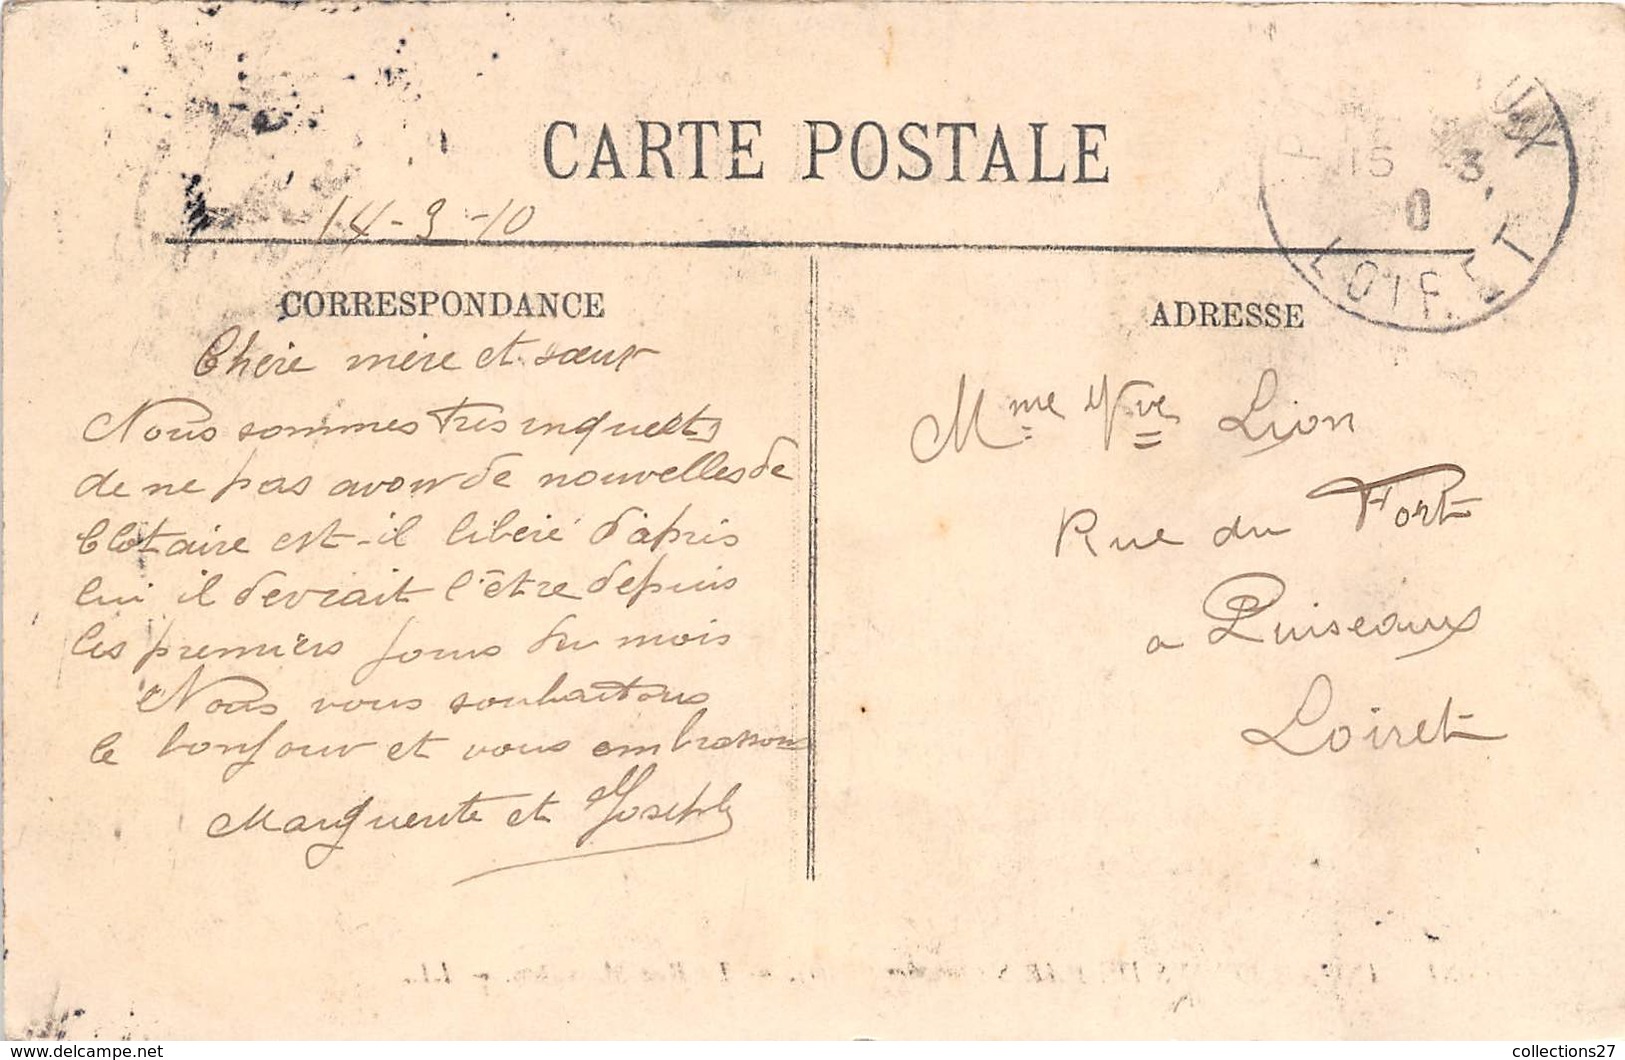 CARTE POSTALE
14-3-10
CORRESPONDANCE
Chère mère et sœur
Nous sommes très inquiets
de ne pas avoir de nouvelles de
Clotaire est-il libéré d'après
lui il devrait l'être depuis
les premiers jours du mois
Nous vous souhaitons
le bonjour et vous embrassons
Marguerite et Joseph
ADRESSE
Mme Vve Lion
Rue du Fort
a Puiseaux
Loiret
15 3
LOIRET
collections27